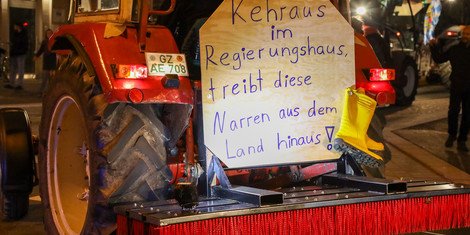 Kehraus
im
Regierungshaus,
treibt diese
Narren aus dem
Land hinaus!
GZ
AE 708